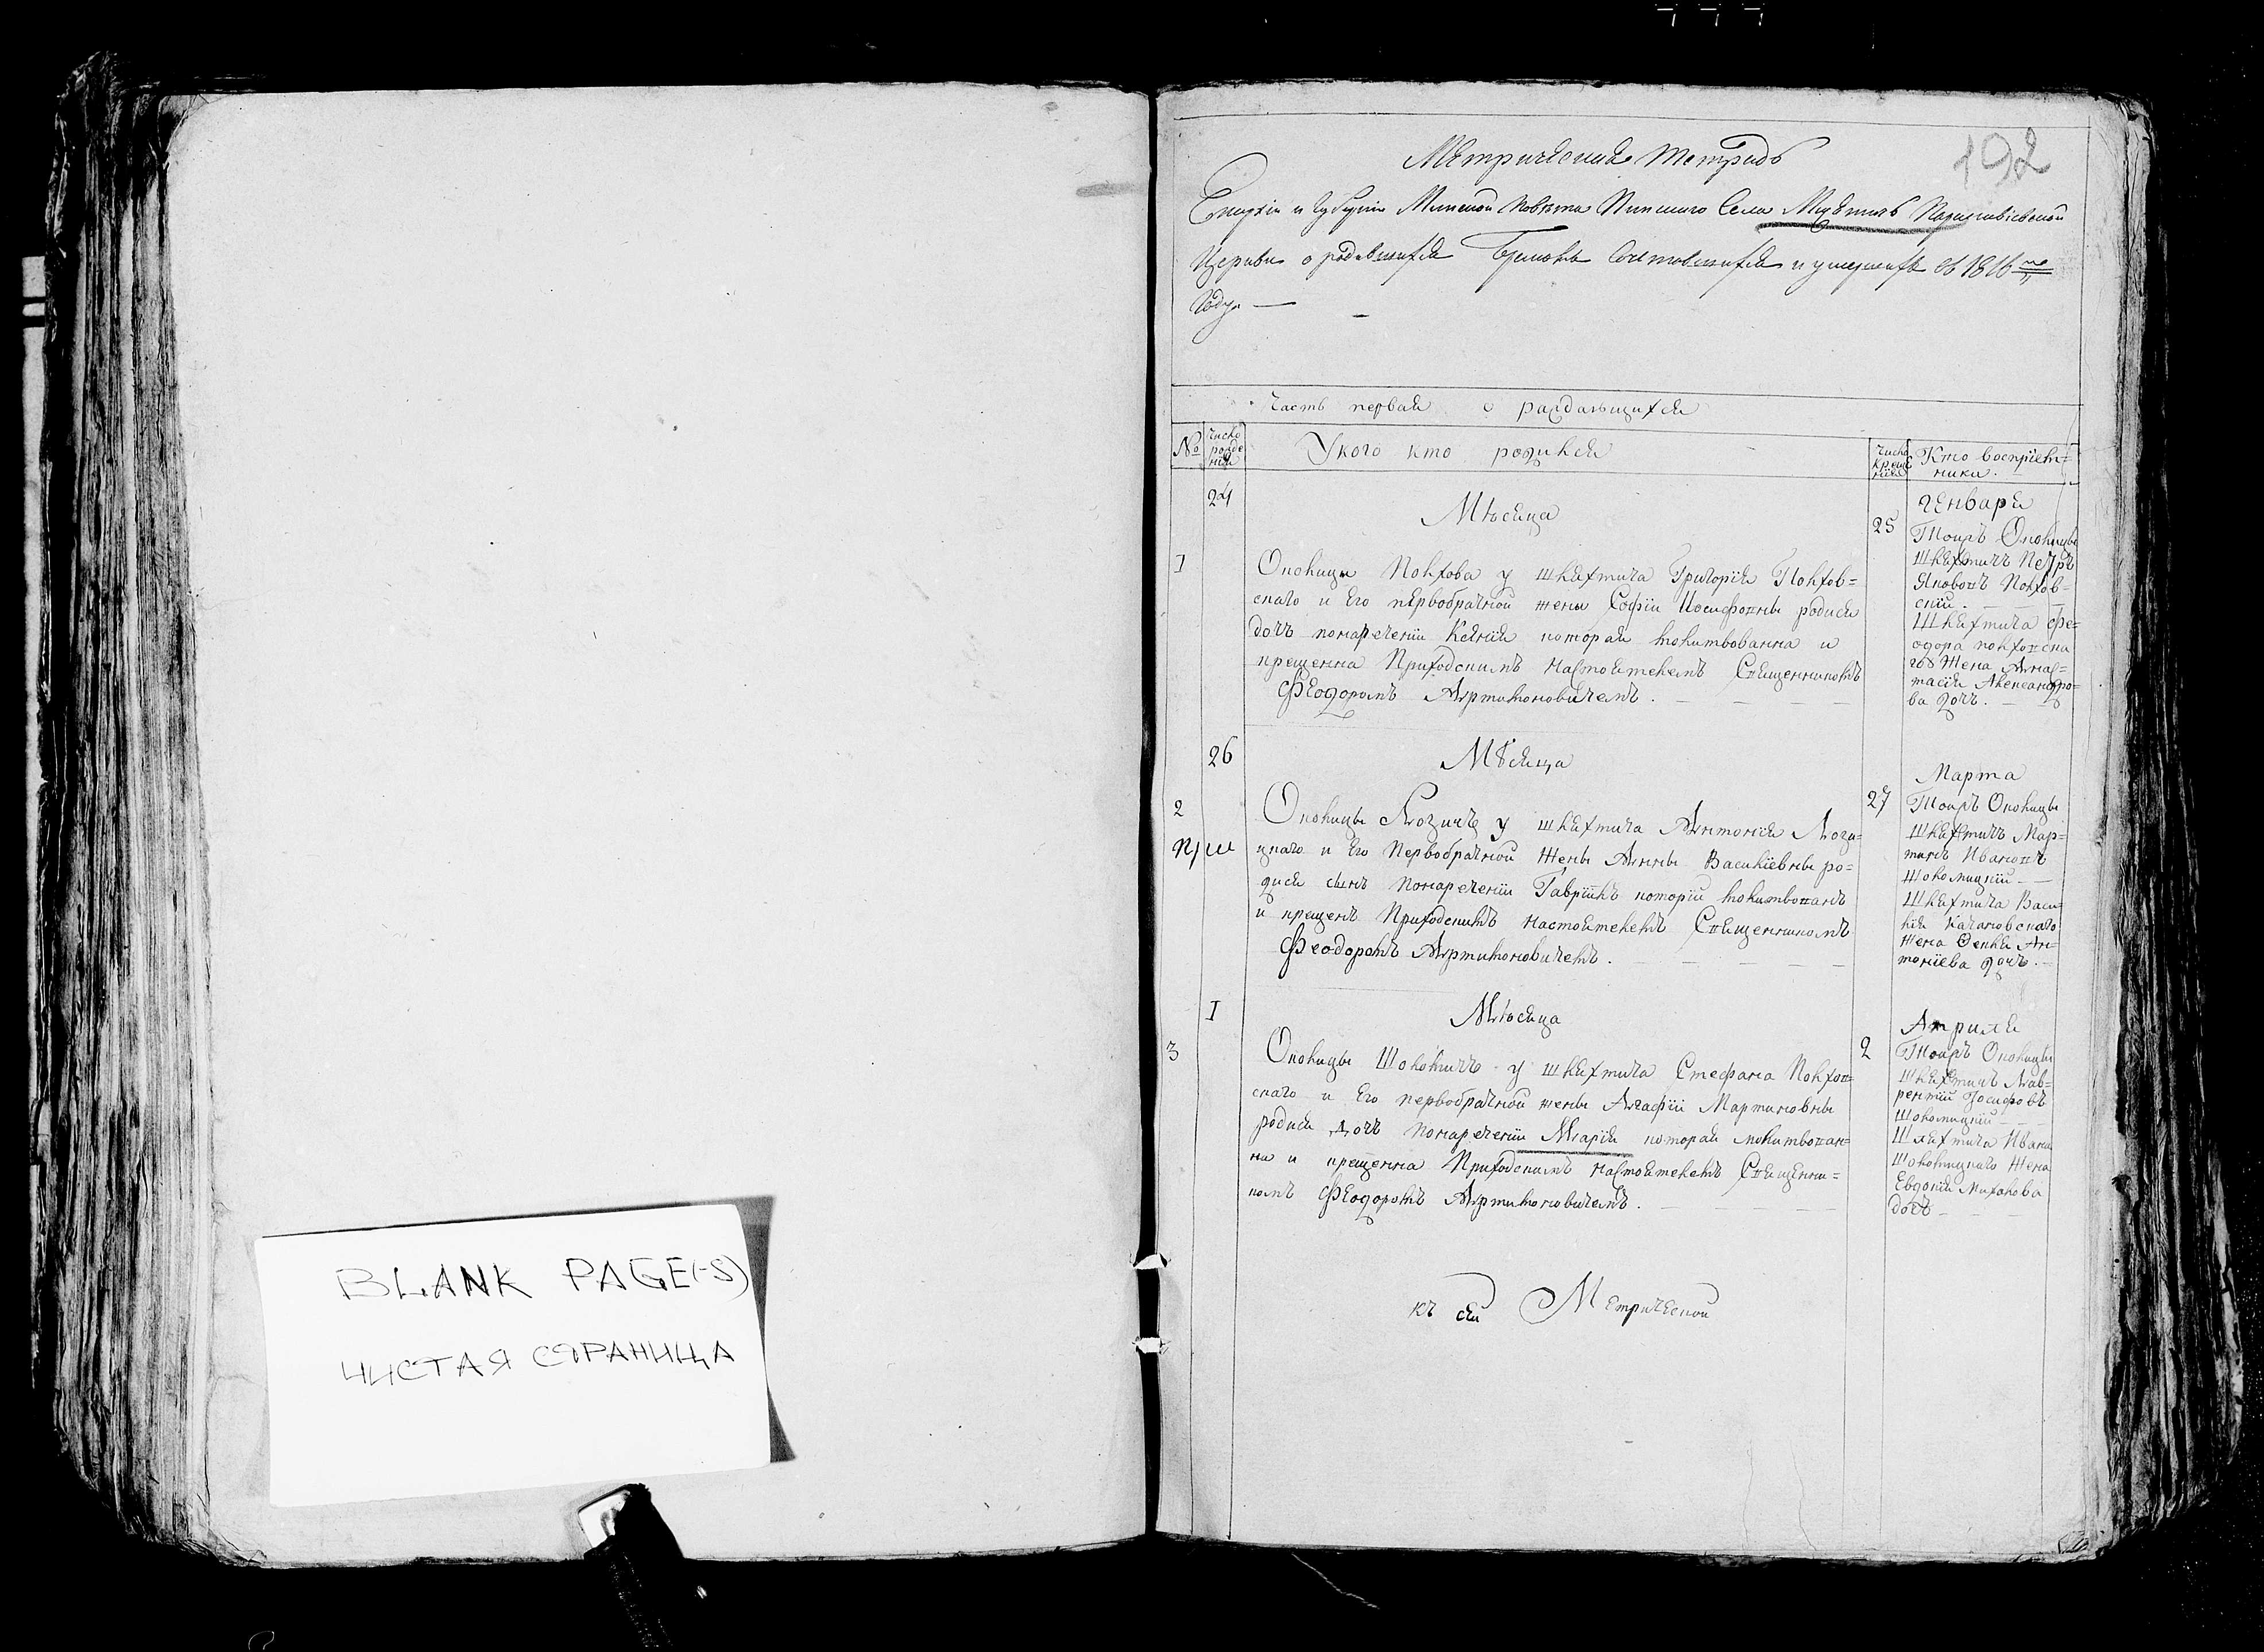 BLANK PAGE(-S)
ЧИСТАЯ СТРАНИЦА
192
Метрическая тетрадь
Епархіи и Губерніи Минской Повѣта Пинскаго Села
Церкви о родившихся Бракомъ Сочтовшихся и умершихъ въ 1816мъ
Году. —
Часть первая о раждающихся
№
Число рожде нія
У кого кто родился
Число креще нія
Кто воспріем=
ники.
24
Мѣсяца
Генваря
25
1
Околицы Полхова у шляхтича Григорія Полхов=
скаго и Его первобрачной жены Софіи Иосифовны родися
дочъ понаречении Ксенія которая молитвованна и
крещенна Приходскимъ настоятелемъ Священникомъ
Феодоромъ
Тоиръ Околицы
шляхтичъ Петръ
Якововъ Полхов=
скій.
Шляхтича Фе=
одора полховска
гоо Жена Анас=
тасія Александро=
ва дочъ.
26
Мѣсяца
Марта
27
2
Околицы у шляхтича Антонія
цкаго и Его Первобрачной Жены Анны Василіевны ро=
дися сынъ понаречении Гавріилъ которій молитвованъ
и крещенъ Приходскимъ настоятелемъ Священникомъ
Феодоромъ
Тоиръ Околицы
шляхтичъ Мар=
тинъ Ивановъ
Шоломицкій
Шляхтича Васи=
лія Качановскаго
жена Ан=
тоніева дочъ.
1
Мѣсяца
Априля
2
3
Околицы у шляхтича Стефана Полхов=
скаго и Его первобрачной жены Агафіи Мартиновны
родися дочъ понаречении Марія которая молитвован=
на и крещенна Приходскимъ настоятелемъ Священни=
комъ Феодоромъ
Тоиръ Околицы
шляхтичъ Лав=
рентій Иосифовъ
Шоломицкій
Шляхтича Ивана
Шоломицкаго Жена
Евдокія
дочъ
къ сей Метрической